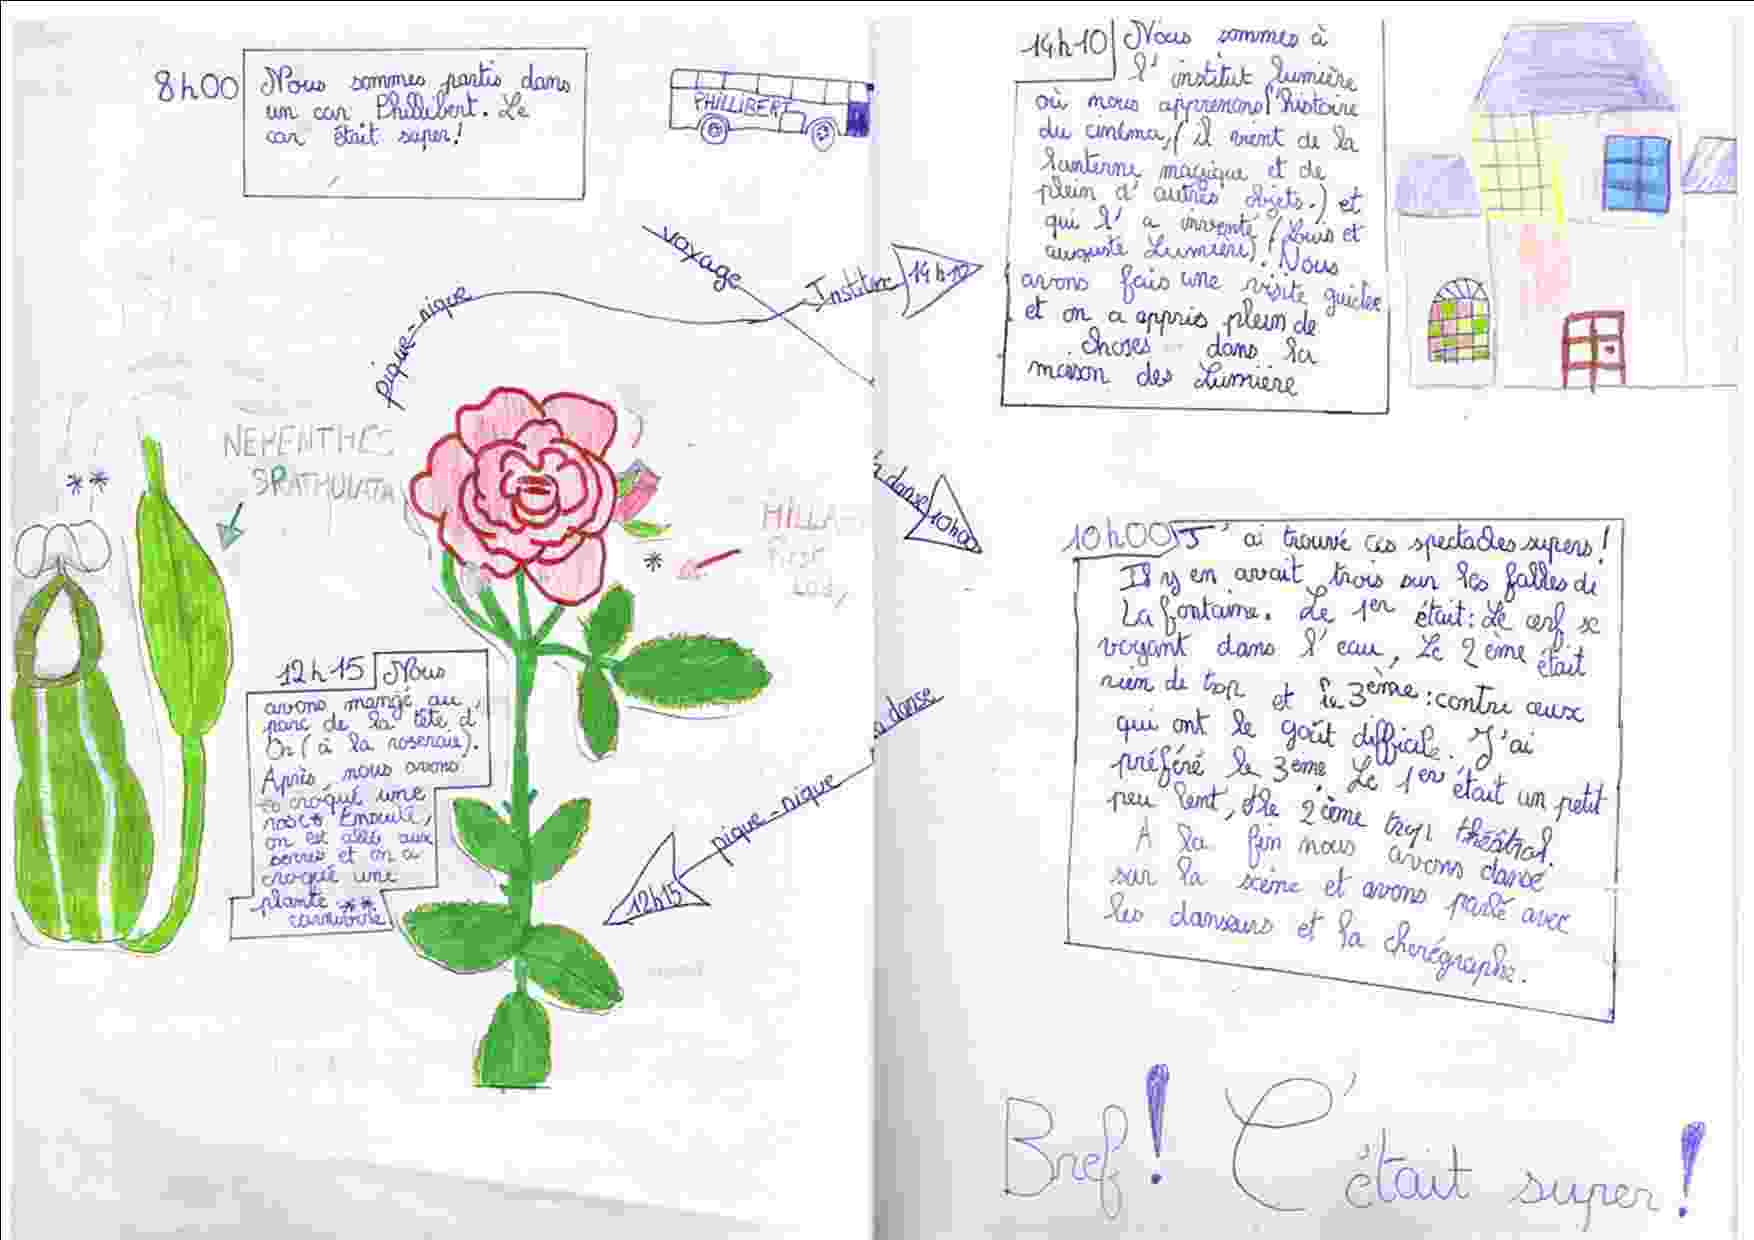 8h00
Nous sommes partis dans
un car Phillibert. Le
car était super!
PHILLIBERT
voyage
pique-nique
Institut 14h10
NEPENTHES
**
First
*
12h15 Nous
avons mangé au
parc de la tête d'
Or (à la roseraie).
Après, nous avons
croqué une
rose* Ensuite,
on est allés aux
serres et on a
croqué une
plante **
carnivore
danse 10h00
danse
pique-nique
12h15
14h10 Nous sommes à
l'institut lumière
où nous apprenons l'histoire
du cinéma, (il vient de la
lanterne magique et de
plein d'autres objets.) et
qui l'a inventé (Louis et
auguste Lumière). Nous
avons fais une visite guidée
et on a appris plein de
choses dans la
maison des Lumière
10h00 J'ai trouvé ces spectacles supers!
Il y en avait trois sur les fables de
La fontaine. Le 1er était: Le cerf se
voyant dans l'eau, Le 2ème était
rien de trop et le 3ème: contre ceux
qui ont le goût difficile. J'ai
préféré le 3ème. Le 1er était un petit
peu lent, et le 2ème trop théâtral.
A la fin nous avons dansé
sur la scène et avons parlé avec
les danseurs et la chorégraphe.
Bref! C'était super!